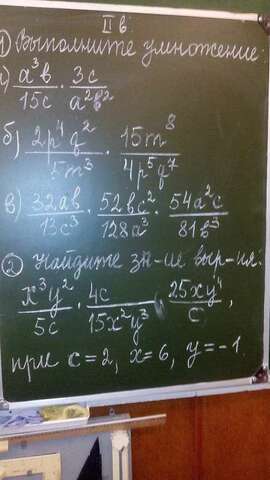 II в.
① Выполните умножение:
а) a³b/15c · 3c/a²b²
б) 2p⁴q²/5m³ · 15m⁸/4p⁵q⁷
в) 32ab/13c³ · 52bc²/128a³ · 54a²c/81b³
② Найдите зн-ие выр-ния:
x³y²/5c · 4c/15x²y³ · 25xy⁴/c,
при c=2, x=6, y=-1.